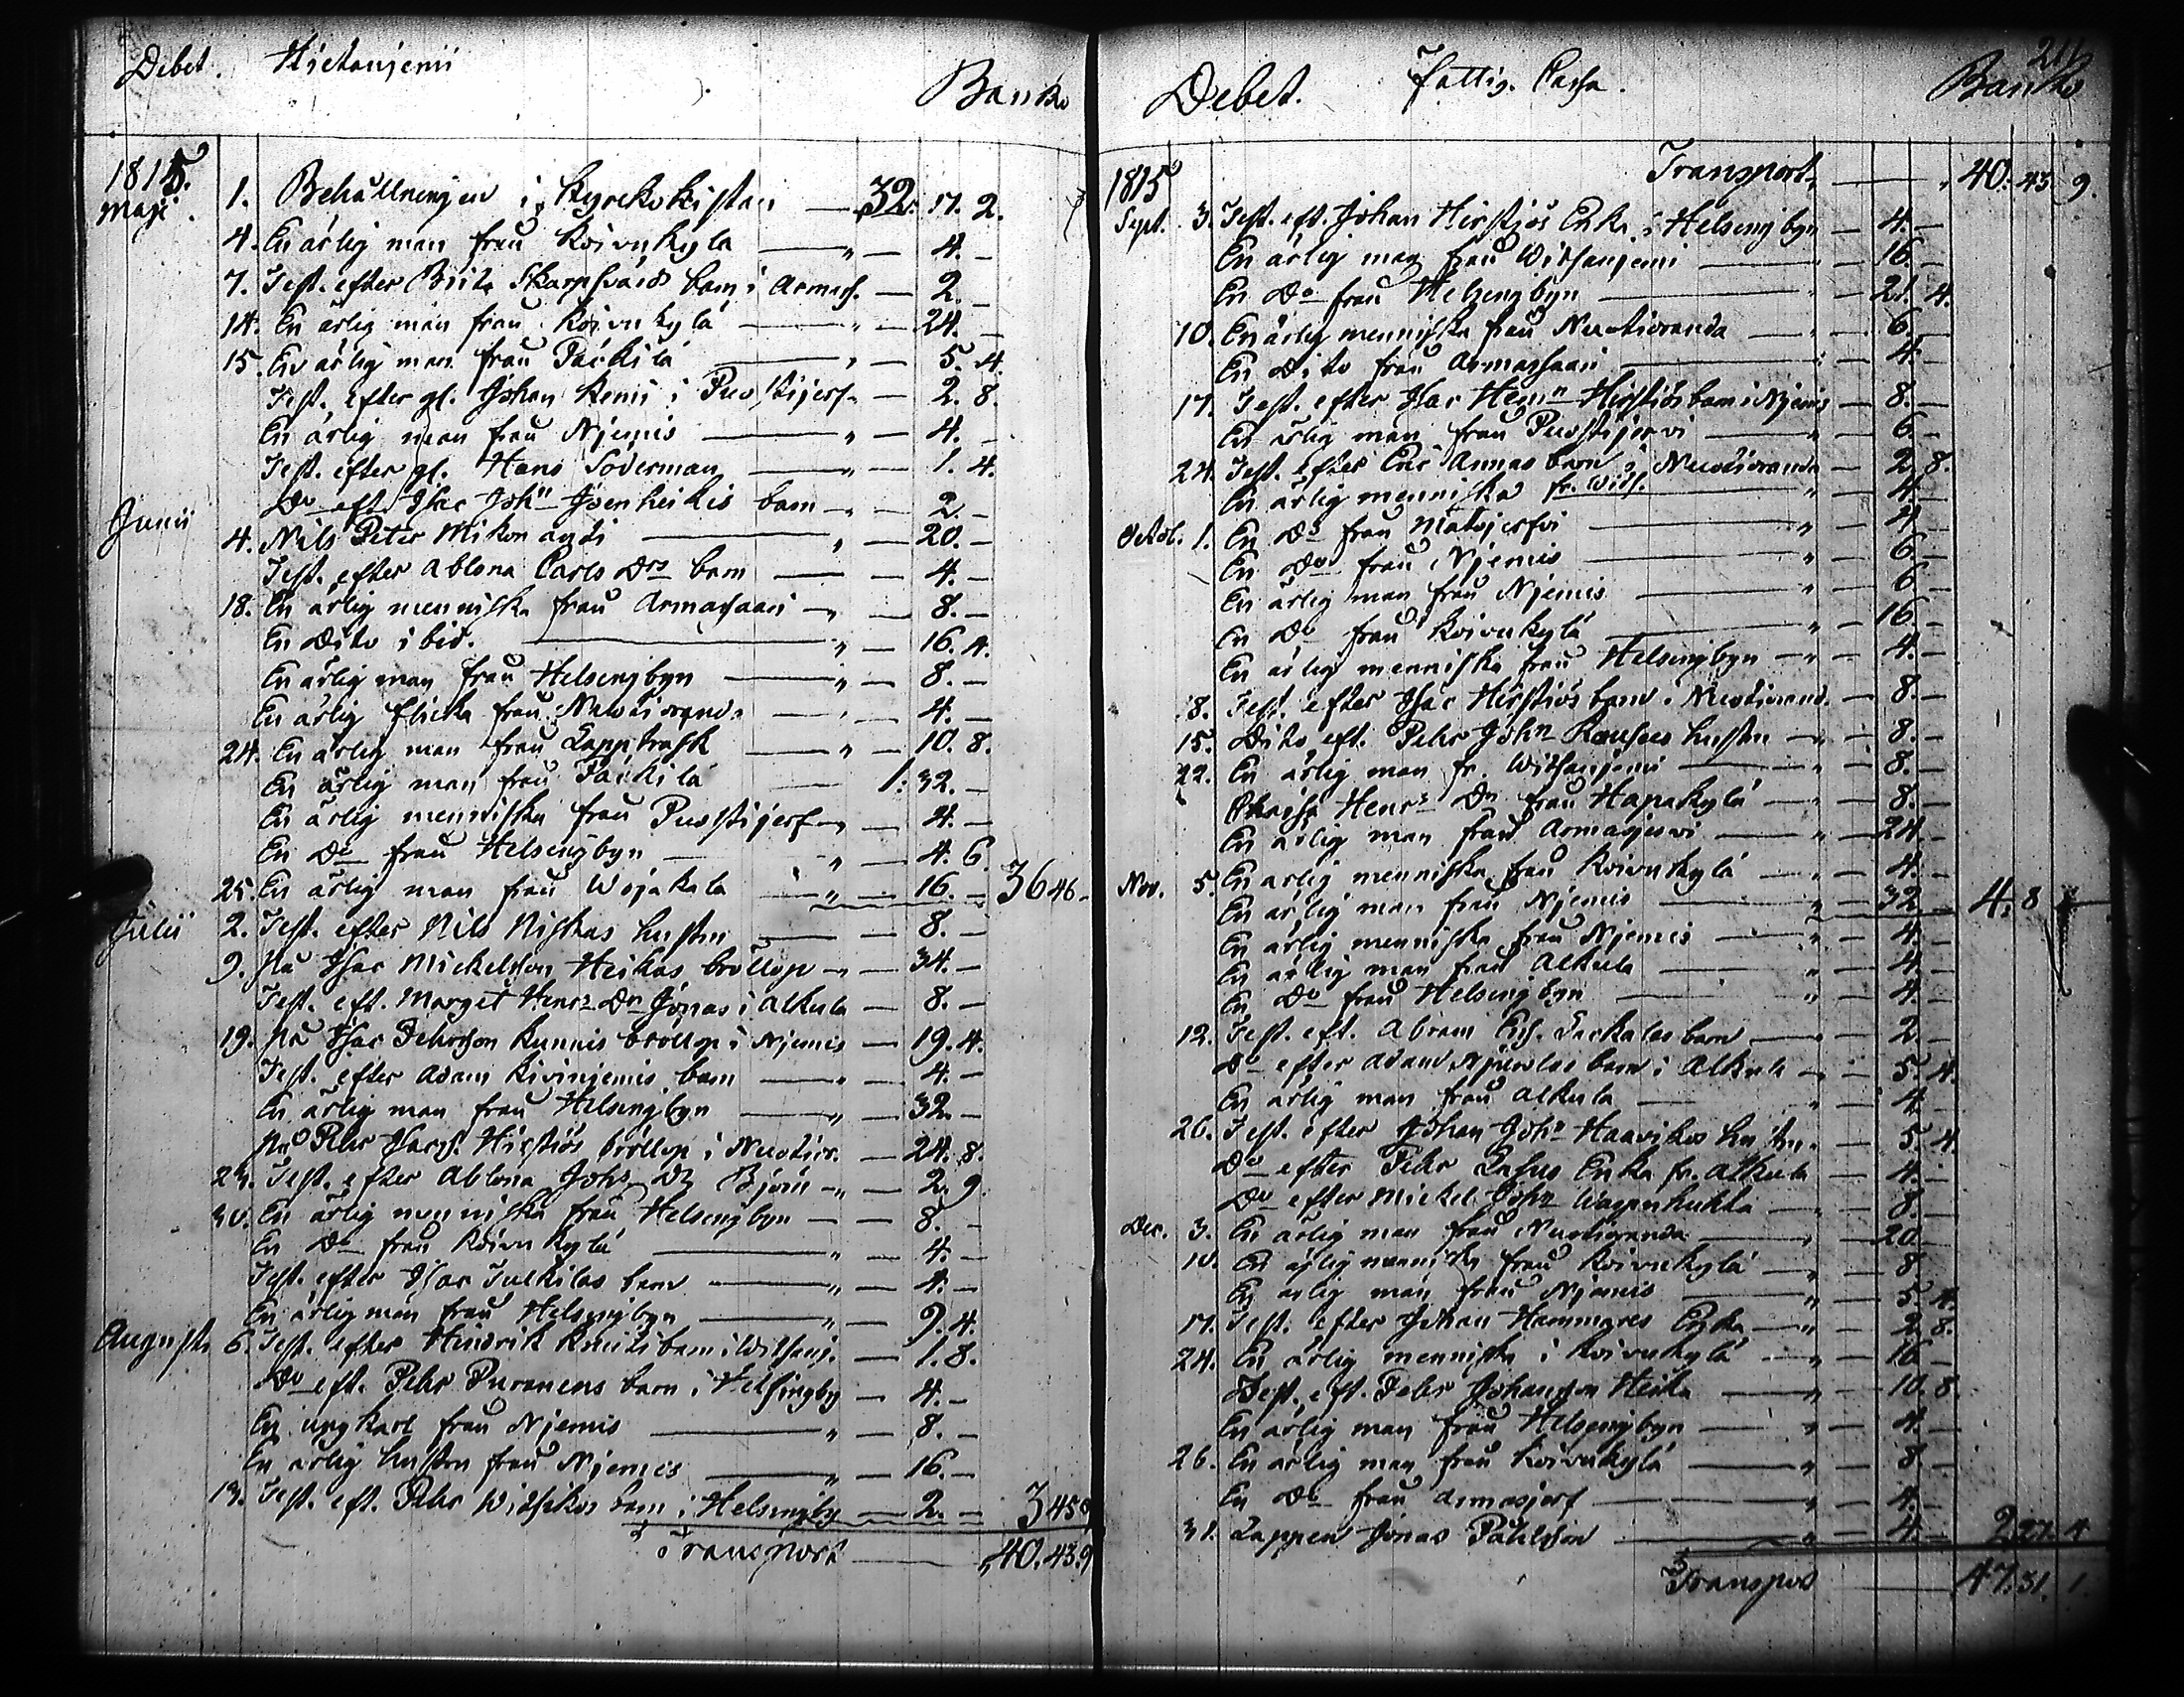 Debet. Hietaniemi Banko
1815.
Maji. 1. Behållningen i Kyrckokistan — 32. 17. 2.
4. En ärlig man från Koivukyla — " — 4. —
7. Test. efter Brita Skarpsvärds barn i Armass. — 2. —
14. En ärlig man från Koivukylä — " — 24. —
15. En ärlig man från Päckilä — " — 5. 4.
Test. efter gl. Johan Kenis i Puostijerf. — 2. 8.
En ärlig man från Njemis — " — 4. —
Test. efter gl. Hans Söderman — " — 1. 4.
Do eft. Isac John barn — " — 2. —
Junii 4. Nils Peter — " — 20. —
Test. efter Ablona Carls Drs barn — — 4. —
18. En ärlig menniska från Armassaari — " — 8. —
En Dito ibid. — " — 16. 4.
En ärlig man från Helsingbyn — " — 8. —
En ärlig flicka från — " — 4. —
24. En ärlig man från Lappträsk — " — 10. 8.
En ärlig man från Päckilä — 1. 32. —
En ärlig menniska från Puostijerf — " — 4. —
En Do från Helsingbyn — " — 4. 6.
25. En ärlig man från Wojakala — " — 16. — 36 46 —
Julii 2. Test. efter Nils Niskas hustru — — 8. —
9. På Isac Mickelsson Heikas bröllop — " — 34. —
Test. eft. Marget Henrs Dr Jonas i Alkula — 8. —
19. På Isac Pehrsson Kunnis bröllop i Njemis — 19. 4.
Test. efter Adam Kiviniemis barn — " — 4. —
En ärlig man från Helsingbyn — " — 32. —
På Pehr Isacs. Hirstiös bröllop i Nuotior. — 24. 8.
23. Test. efter Ablona Johs Dr Björn — " — 2. 9.
30. En ärlig menniska från Helsingbyn — — 8. —
En Do från Koivukylä — " — 4. —
Test. efter Isac barn — " — 4. —
En ärlig man från Helsingbyn — " — 9. 4.
Augusti 6. Test. efter Hindrik barn i Witsanj. — 1. 8.
Do eft. Pehr Puranens barn i Helsingby — 4. —
En ung karl från Njemis — " — 8. —
En ärlig hustru från Njemis — " — 16. —
13. Test. eft. Pehr barn i Helsingby — 2. — 3 45 9
Transport — " 40. 43. 9
Debet. Fattig. Cassa. Banko
1815 Transport — " 40. 43. 9.
Sept. 3. Test. eft. Johan Hirstjös Enka i Helsingbyn — 4. —
En ärlig man från Witsanjemi — 16. —
En Do från Helsingbyn — " — 21. 4.
10. En ärlig menniska från Nuotioranda — 6. —
En Dito från Armassaari — " — 4. —
17. Test. efter Isac Henrn Hirstiös barn i Njemis — 8. —
En ärlig man från Puostijervi — " — 6. —
24. Test. efter Eric Annas barn i Nuotioranda — 2. 8.
En ärlig menniska fr. Wits. — " — 4. —
Octob. 1. En Do från Matojerfvi — " — 4. —
En Do från Njemis — " — 6. —
En ärlig man från Njemis — " — 6 —
En Do från Koivukylä — " — 16. —
En ärlig menniska från Helsingbyn — " — 4. —
8. Test. efter Isac Hirstiös barn i Nuotiorand. — 8. —
15. Dito eft. Pehr John hustru — " — 8. —
22. En ärlig man fr. Witsanjemi — " — 8. —
Henrs Dr från Hapakylä — " — 8. —
En ärlig man från Armasjervi — " — 24 —
Nov. 5. En ärlig menniska från Koivukylä — " — 4. —
En ärlig man från Njemis — " — 32 — 4. 8 —
En ärlig menniska från Njemis — " — 4. —
En ärlig man från Alkula — " — 4. —
En Do från Helsingbyn — " — 4. —
12. Test. eft. Abram barn — " — 2. —
Do efter Adam barn i Alkula — " — 5. 4.
En ärlig man från Alkula — " — 4. —
26. Test. efter Johan John Haavikos hustru — 5. 4
Do efter Pehr Enka fr. Alkula — 4. —
Do efter Mickel John — " — 8. —
Dec. 3. En ärlig man från Nuotioranda — " — 20 —
10. En ärlig menniska från Koivukylä — " — 8 —
En ärlig man från Njemis — " — 5. 4.
17. Test. efter Johan Enka — " — 2. 8.
24. En ärlig menniska i Koivukylä — " — 16 —
Test. eft. Pehr Johansson Heika — " — 10. 8
En ärlig man från Helsingbyn — " — 4. —
26. En ärlig man från Koivukylä — " — 8 —
En Do från Armasjerf — " — 4. —
31. Lappen Jonas Påhlsson — " — 4. — 2. 27. 4
Transport — 47. 31. 1.